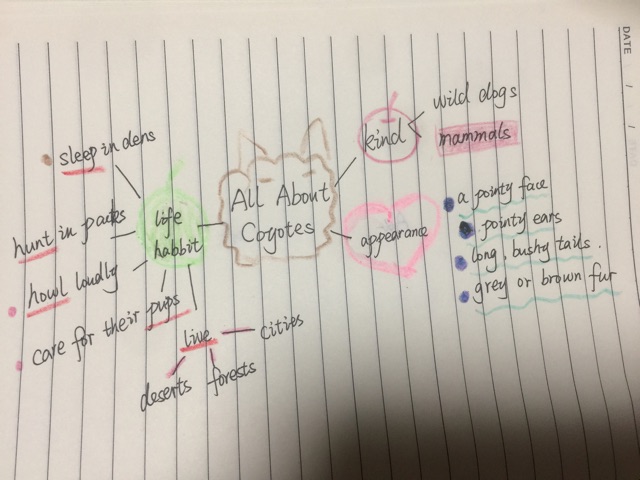 DATE
wild dogs
kind
mammals
sleep in dens
All About
Coyotes
life
habbit
a pointy face
pointy ears
appearance
long, bushy tails.
grey or brown fur
hunt in packs
howl loudly
care for their pups
live
cities
deserts
forests